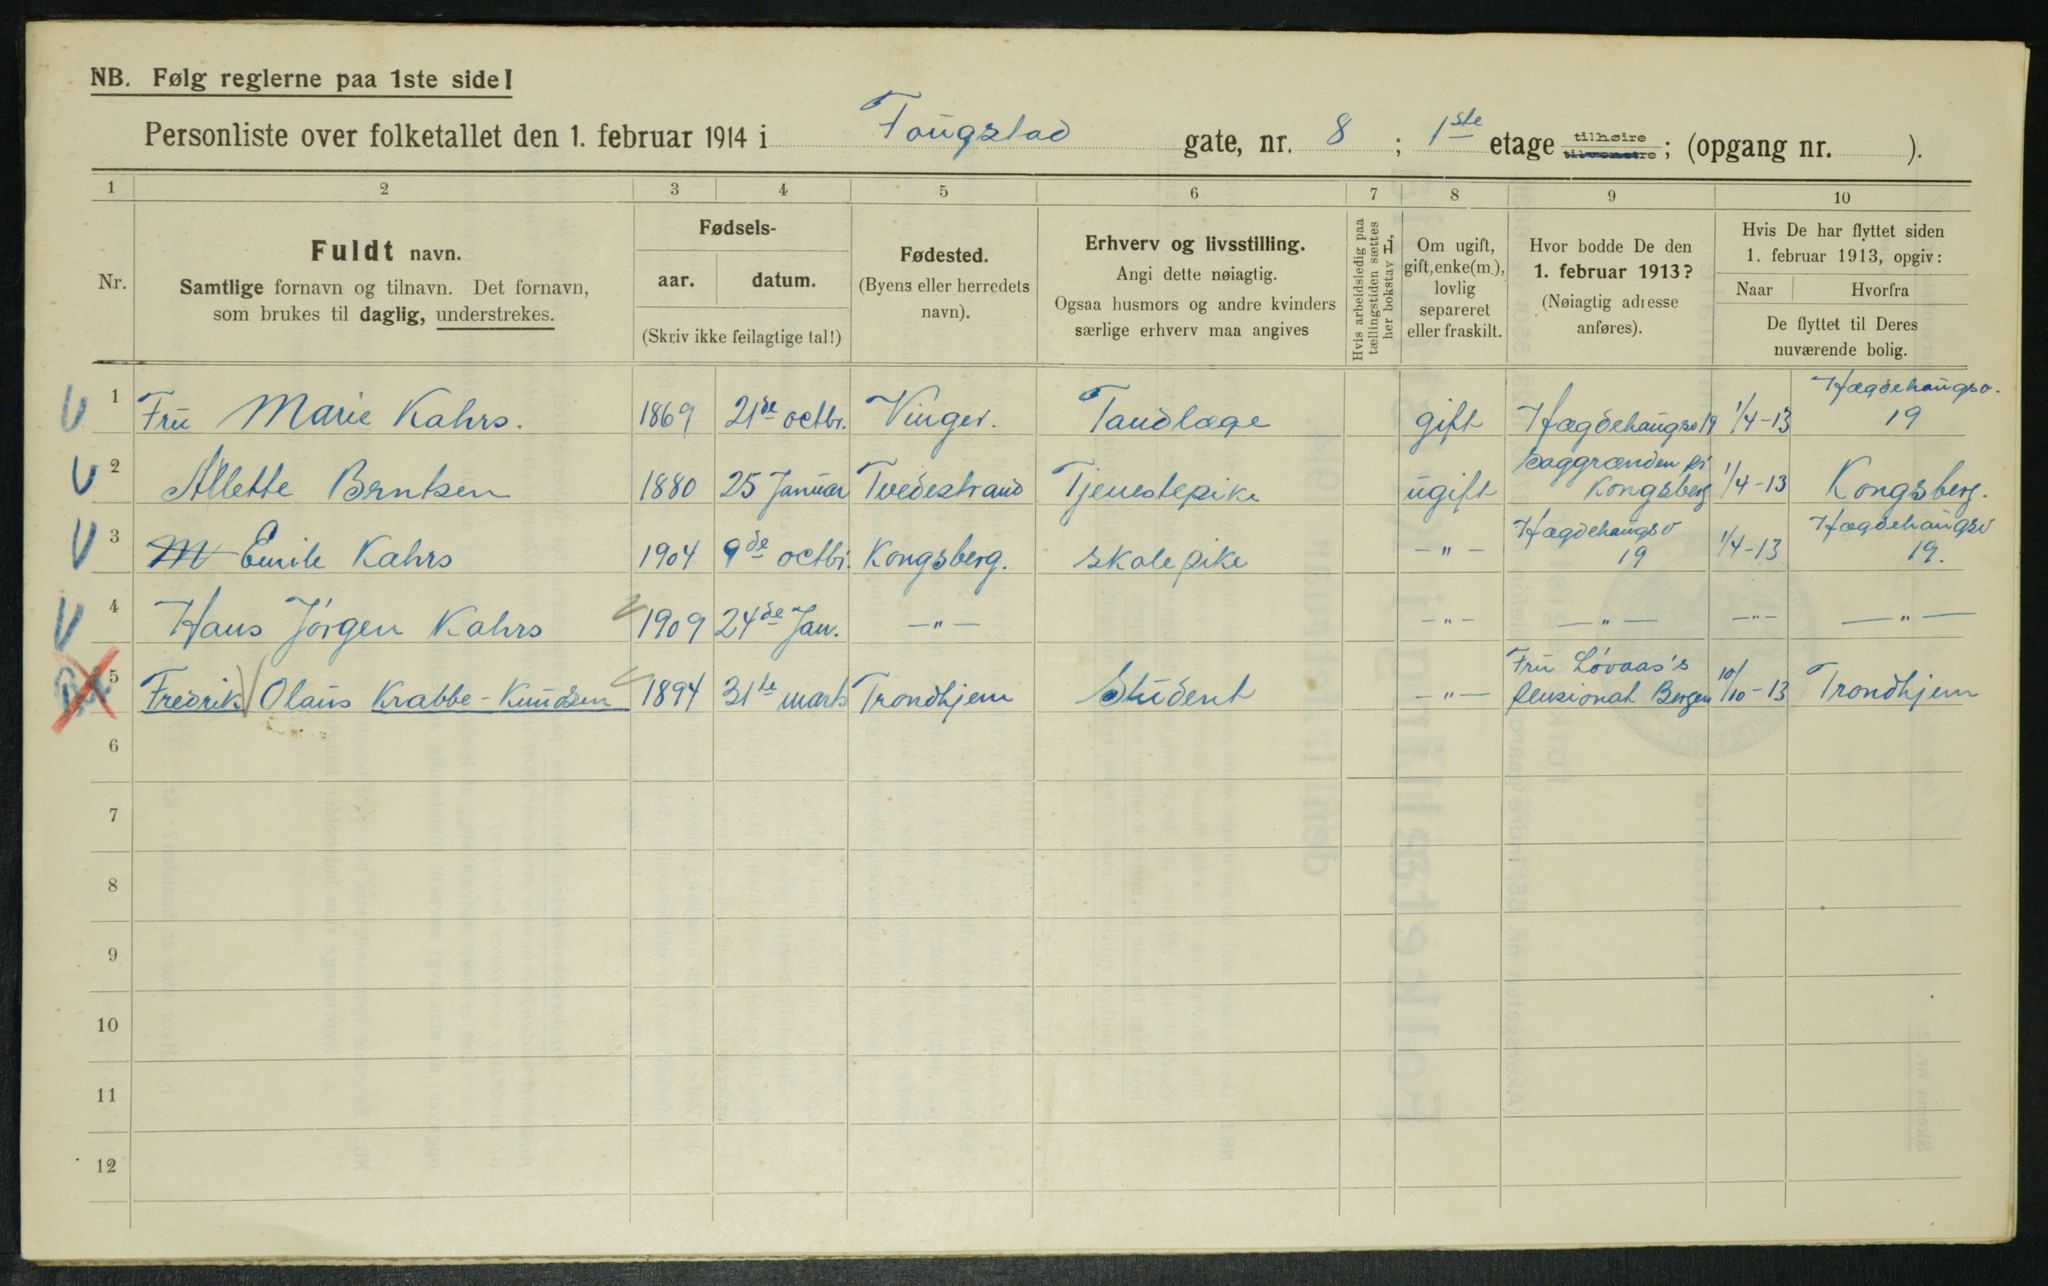 NB. Følg reglerne paa 1ste side!
Personliste over folketallet den 1. februar 1914 i Fougstad gate, nr. 8 ; 1ste etage tilhøire tilvenstre; (opgang nr. ).
1 2 3 4 5 6 7 8 9 10
Nr.
Fuldt navn.
Samtlige fornavn og tilnavn. Det fornavn,
som brukes til daglig, understrekes.
Fødsels-
aar. datum.
(Skriv ikke feilagtige tal!)
Fødested.
(Byens eller herredets
navn).
Erhverv og livsstilling.
Angi dette nøiagtig.
Ogsaa husmors og andre kvinders
særlige erhverv maa angives
Hvis arbeidsledig paa
tællingstiden sættes
her bokstav L,
Om ugift,
gift, enke(m.),
lovlig
separeret
eller fraskilt.
Hvor bodde De den
1. februar 1913?
(Nøiagtig adresse
anføres).
Hvis De har flyttet siden
1. februar 1913, opgiv:
Naar Hvorfra
De flyttet til Deres
nuværende bolig.
1 Fru Marie Kahrs. 1869 21de octbr. Vinger. Tandlæge gift Hægdehaugsv 19 1/4-13 Hægdehaugsv. 19
2 Allette Berntsen 1880 25 Januar Tvedestrand Tjenestepike ugift Kongsberg 1/4-13 Kongsberg.
3 M Emile Kahrs 1904 9de octbr. Kongsberg. skolepike -"- Hægdehaugsv 19 1/4-13 Hægdehaugsv 19.
4 Hans Jörgen Kahrs 1909 24de Jan. -"- -"- -"- -"- -"-
5 Fredrik Olaus Krabbe-Knudsen 1894 31te marts Trondhjem Student -"- Fru Lövaas's pensionat Bergen 10/10-13 Trondhjem
6
7
8
9
10
11
12